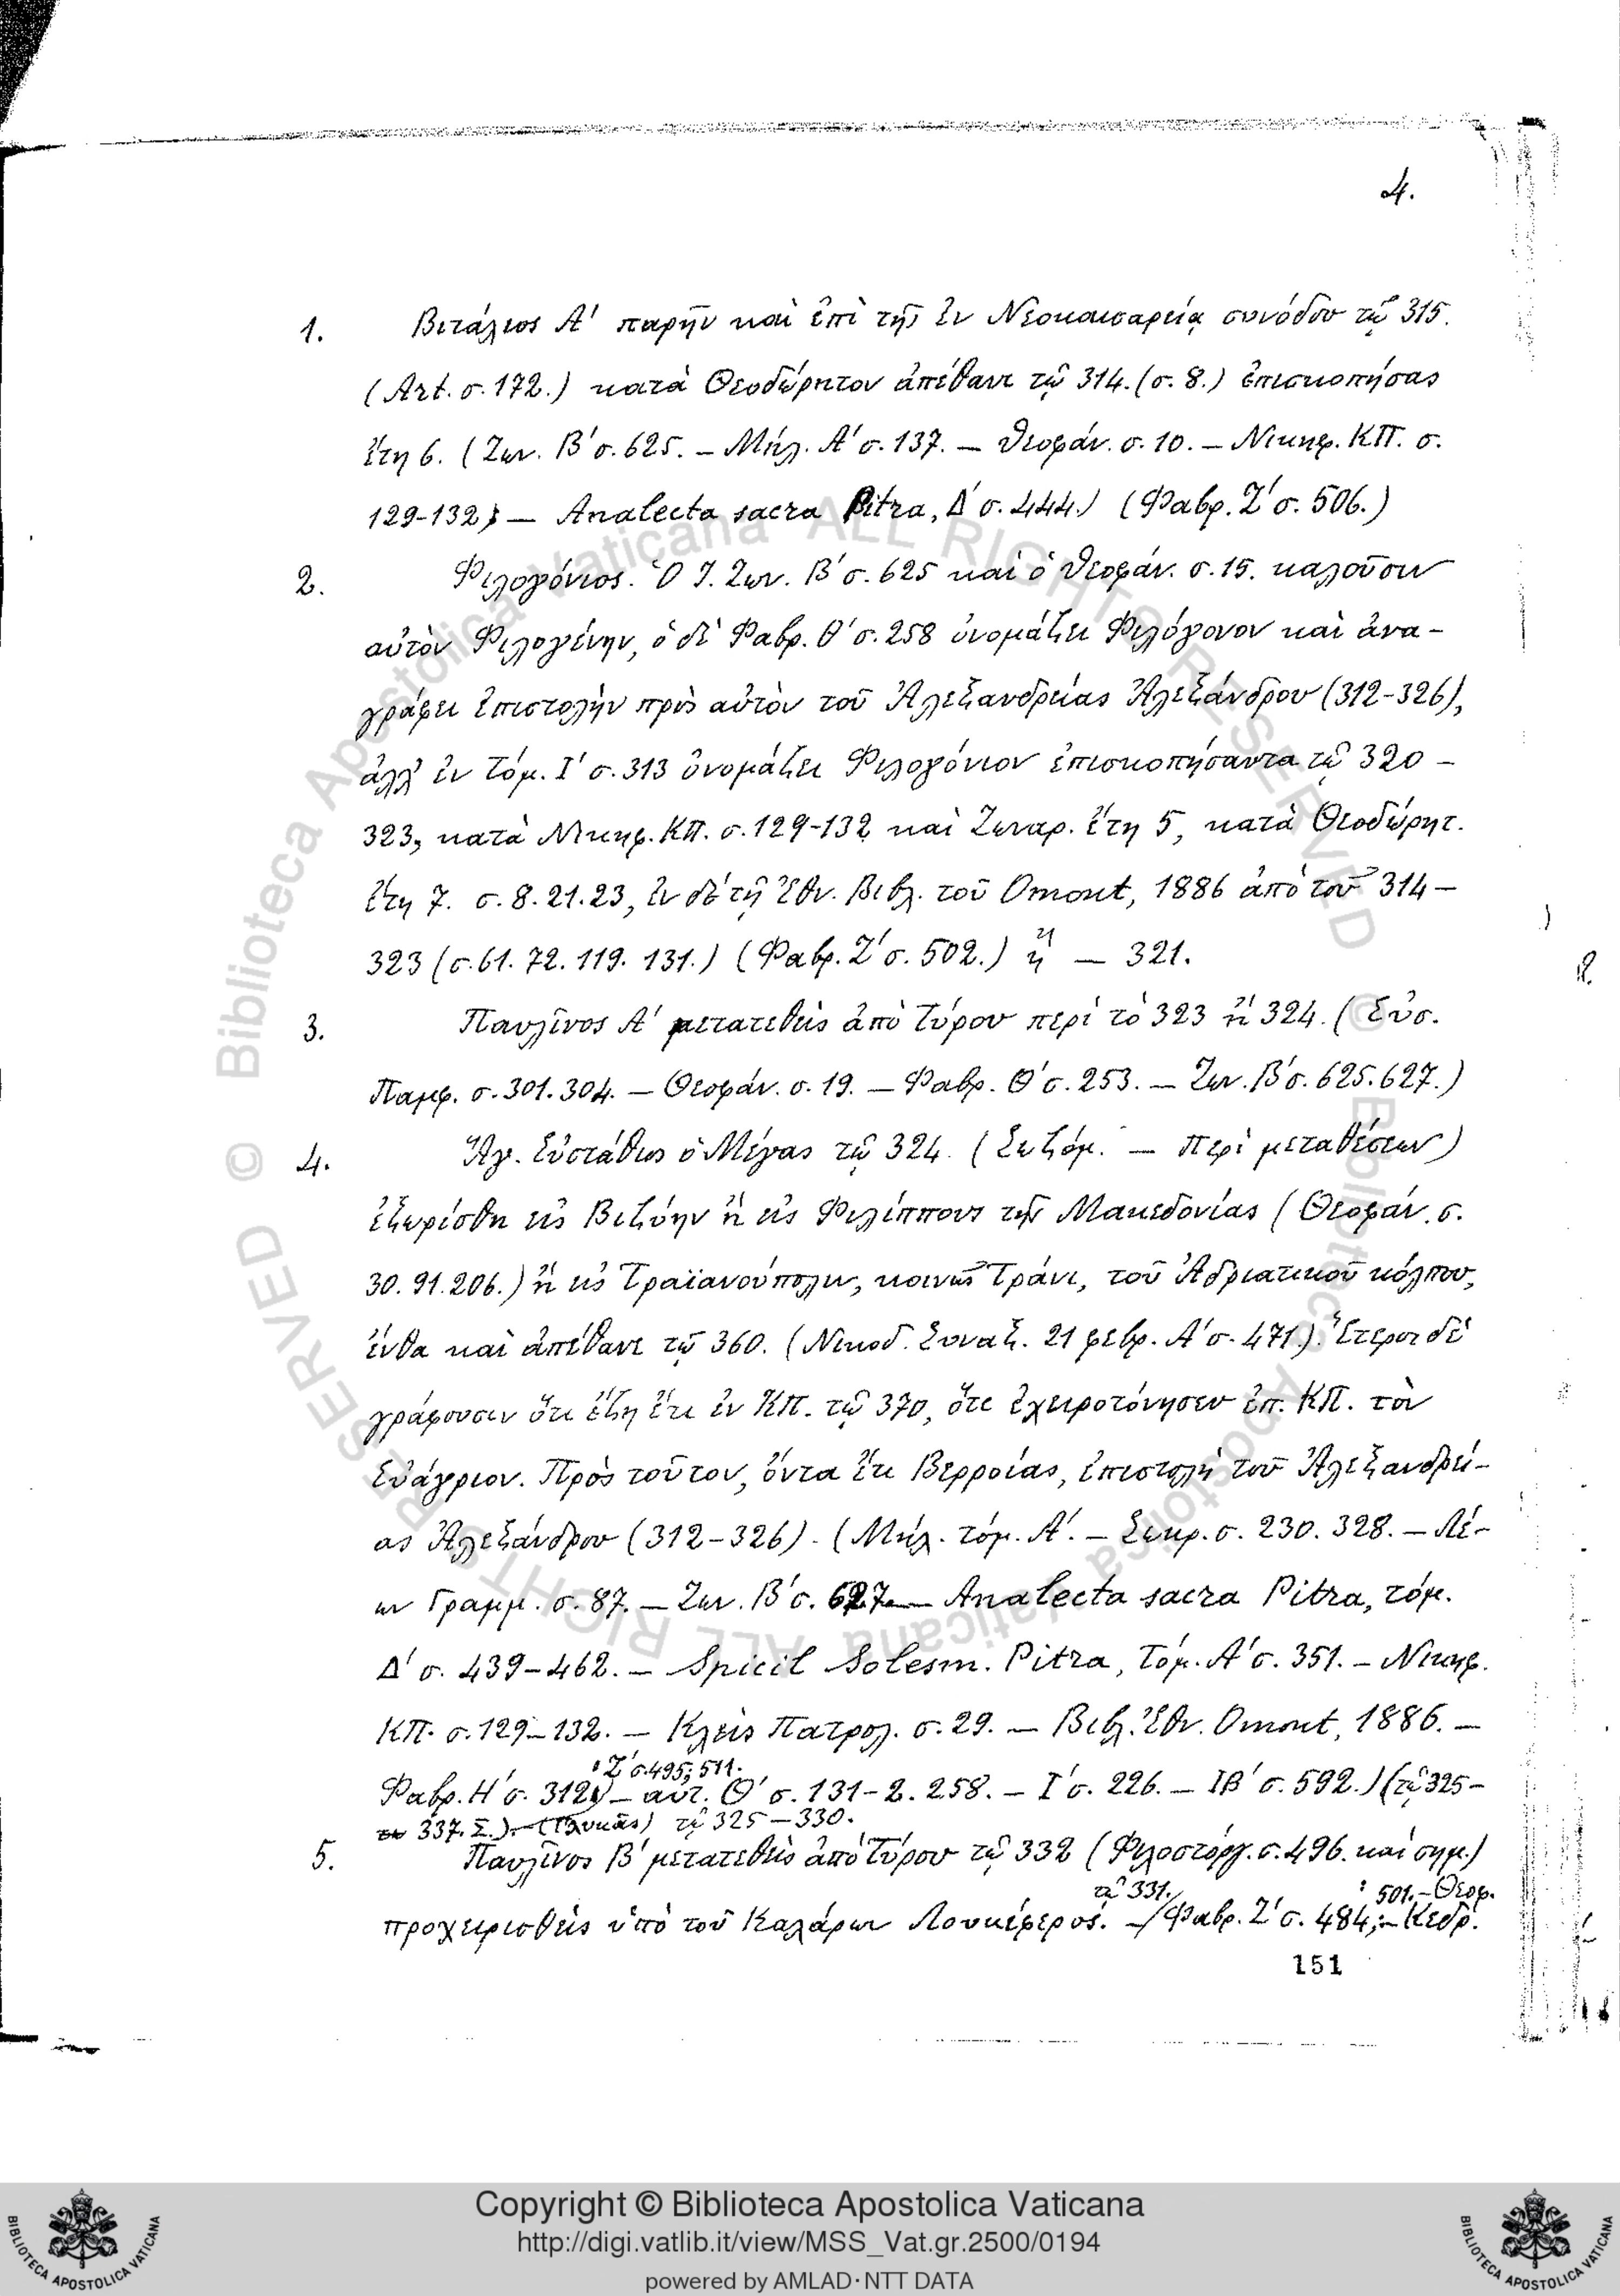 4.
1. Βιτάλιος Α' παρῆν καὶ ἐπὶ τῆς ἐν Νεοκαισαρείᾳ συνόδου τῷ 315.
(Art. σ. 172.) κατὰ Θεοδώρητον ἀπέθανε τῷ 314. (σ. 8.) ἐπισκοπήσας
ἔτη 6. (Ζων. Β' σ. 625. — Μήλ. Α' σ. 137. — Θεοφάν. σ. 10. — Νικηφ. ΚΠ. σ.
129-132) — Analecta sacra Pitra, Δ' σ. 444.) (Φαβρ. Ζ' σ. 506.)
2. Φιλογόνιος. Ὁ Ἰ. Ζων. Β' σ. 625 καὶ ὁ Θεοφάν. σ. 15. καλοῦσιν
αὐτὸν Φιλογένην, ὁ δὲ Φαβρ. Θ' σ. 258 ὀνομάζει Φιλόγονον καὶ ἀνα-
γράφει ἐπιστολὴν πρὸς αὐτὸν τοῦ Ἀλεξανδρείας Ἀλεξάνδρου (312-326),
ἀλλ' ἐν Τόμ. Ι' σ. 313 ὀνομάζει Φιλογόνιον ἐπισκοπήσαντα τῷ 320 -
323, κατὰ Νικηφ. ΚΠ. σ. 129-132 καὶ Ζωναρ. ἔτη 5, κατὰ Θεοδώρητ.
ἔτη 7. σ. 8. 21. 23, ἐν δὲ τῇ Ἐθν. Βιβλ. τοῦ Omont, 1886 ἀπὸ τοῦ 314 —
323 (σ. 61. 72. 119. 131.) (Φαβρ. Ζ' σ. 502.) ἢ — 321.
3. Παυλῖνος Α' μετατεθεὶς ἀπὸ Τύρου περὶ τὸ 323 ἢ 324. (Εὐσ.
Παμφ. σ. 301. 304. — Θεοφάν. σ. 19. — Φαβρ. Θ' σ. 253. — Ζων. Β' σ. 625. 627.)
4. Ἅγ. Εὐστάθιος ὁ Μέγας τῷ 324. (Σωζόμ. — Περὶ μεταθέσεων)
ἐξωρίσθη εἰς Βιζύην ἢ εἰς Φιλίππους τῆς Μακεδονίας (Θεοφάν. σ.
30. 91. 206.) ἢ εἰς Τραϊανούπολιν, κοινῶς Τράνι, τοῦ Ἀδριατικοῦ κόλπου,
ἔνθα καὶ ἀπέθανε τῷ 360. (Νικοδ. Συναξ. 21 φεβρ. Α' σ. 471.). Ἕτεροι δὲ
γράφουσιν ὅτι ἔζη ἔτι ἐν ΚΠ. τῷ 370, ὅτε ἐχειροτόνησεν ἐπ. ΚΠ. τὸν
Εὐάγριον. Πρὸς τοῦτον, ὄντα ἔτι Βερροίας, ἐπιστολὴ τοῦ Ἀλεξανδρεί-
ας Ἀλεξάνδρου (312-326). (Μήλ. τόμ. Α'. — Σωκρ. σ. 230. 328. — Λέ-
ων Γραμμ. σ. 87. — Ζων. Β' σ. 627. — Analecta sacra Pitra, τόμ.
Δ' σ. 439-462. — Spicil Solesm. Pitra, Τόμ. Α' σ. 351. — Νικηφ.
ΚΠ. σ. 129-132. — Κλεὶς Πατρολ. σ. 29. — Βιβλ. Ἐθν. Omont, 1886. —
Ζ' σ. 495, 511.
Φαβρ. Η' σ. 312 — αὐτ. Θ' σ. 131-2. 258. — Ι' σ. 226. — ΙΒ' σ. 592.) (τῷ 325 -
337. Σ.) τῷ 325 — 330.
5. Παυλῖνος Β' μετατεθεὶς ἀπὸ Τύρου τῷ 332 (Φιλοστόργ. σ. 496. καὶ σημ.)
τῷ 331. 501. — Θεοφ.
προχειρισθεὶς ὑπὸ τοῦ Καλάρων Λουκίφερος. — Φαβρ. Ζ' σ. 484, — Κεδρ.
151
© Biblioteca Apostolica Vaticana ALL RIGHTS RESERVED
Copyright © Biblioteca Apostolica Vaticana
http://digi.vatlib.it/view/MSS_Vat.gr.2500/0194
powered by AMLAD·NTT DATA
BIBLIOTECA APOSTOLICA VATICANA
BIBLIOTECA APOSTOLICA VATICANA